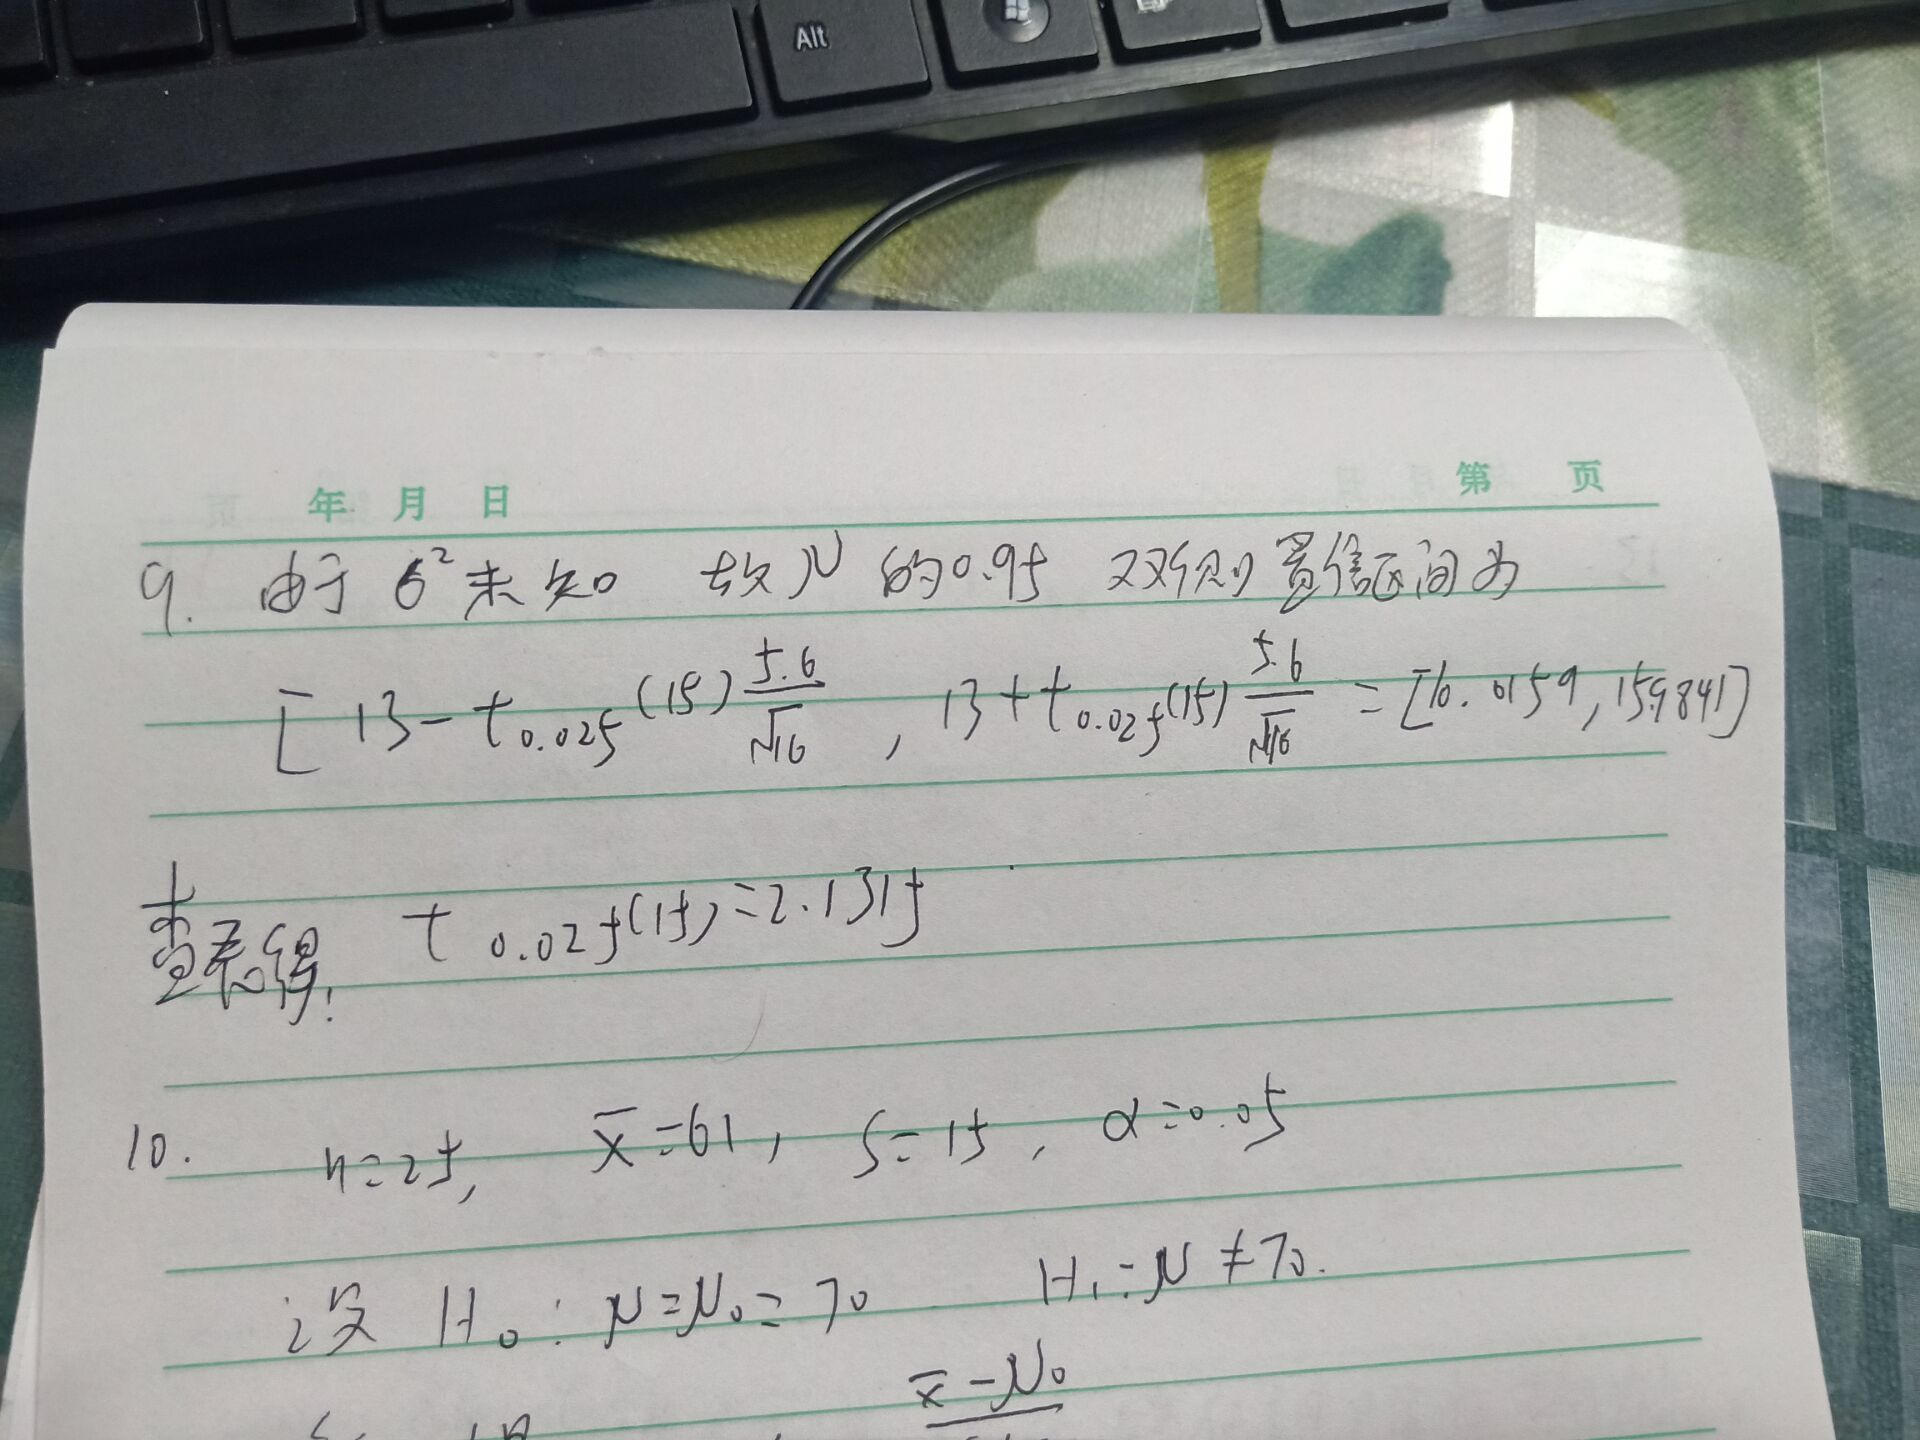 Alt
年 月 日 第 页
9. 由于 σ²未知 故μ的0.95 双侧置信区间为
[13-t0.025(15)5.6/√16, 13+t0.025(15)5.6/√16=[10.0159,15.9841]
查表得: t0.025(15)=2.1315
10. n=25, x̄=61, S=15, α=0.05
设 H0: μ=μ0=70 H1:μ≠70.
x̄-μ0